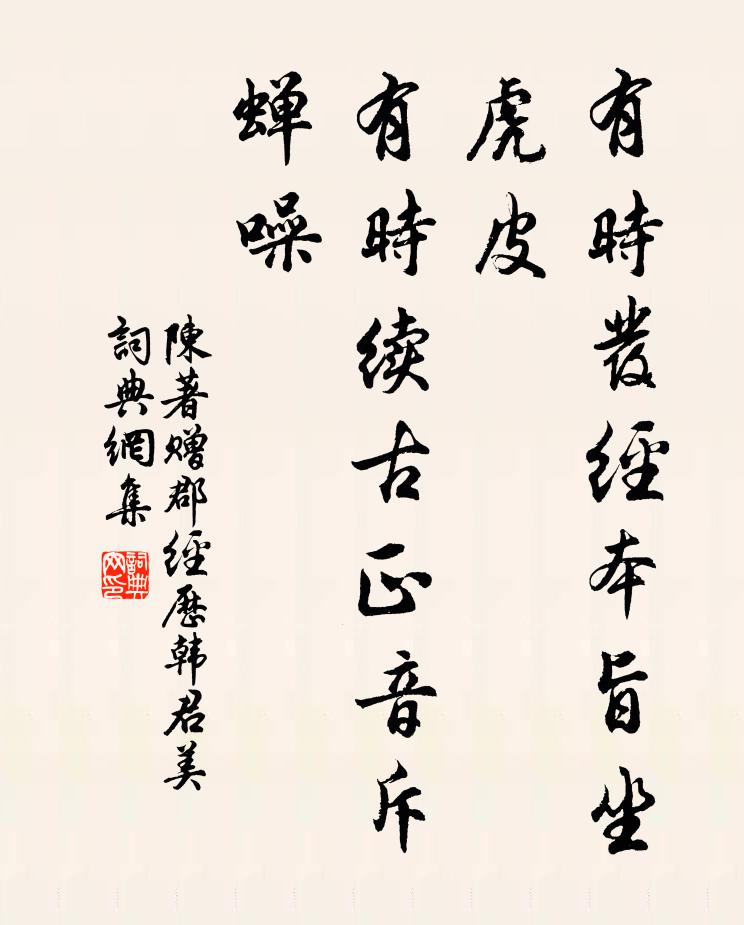 有時發經本旨坐
虎皮
有時续古正音斥
蝉噪
陳著赠郡經歷韩君美
詞典網集
詞典网印